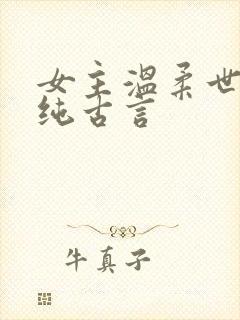 女主温柔世
纯古言
牛真子